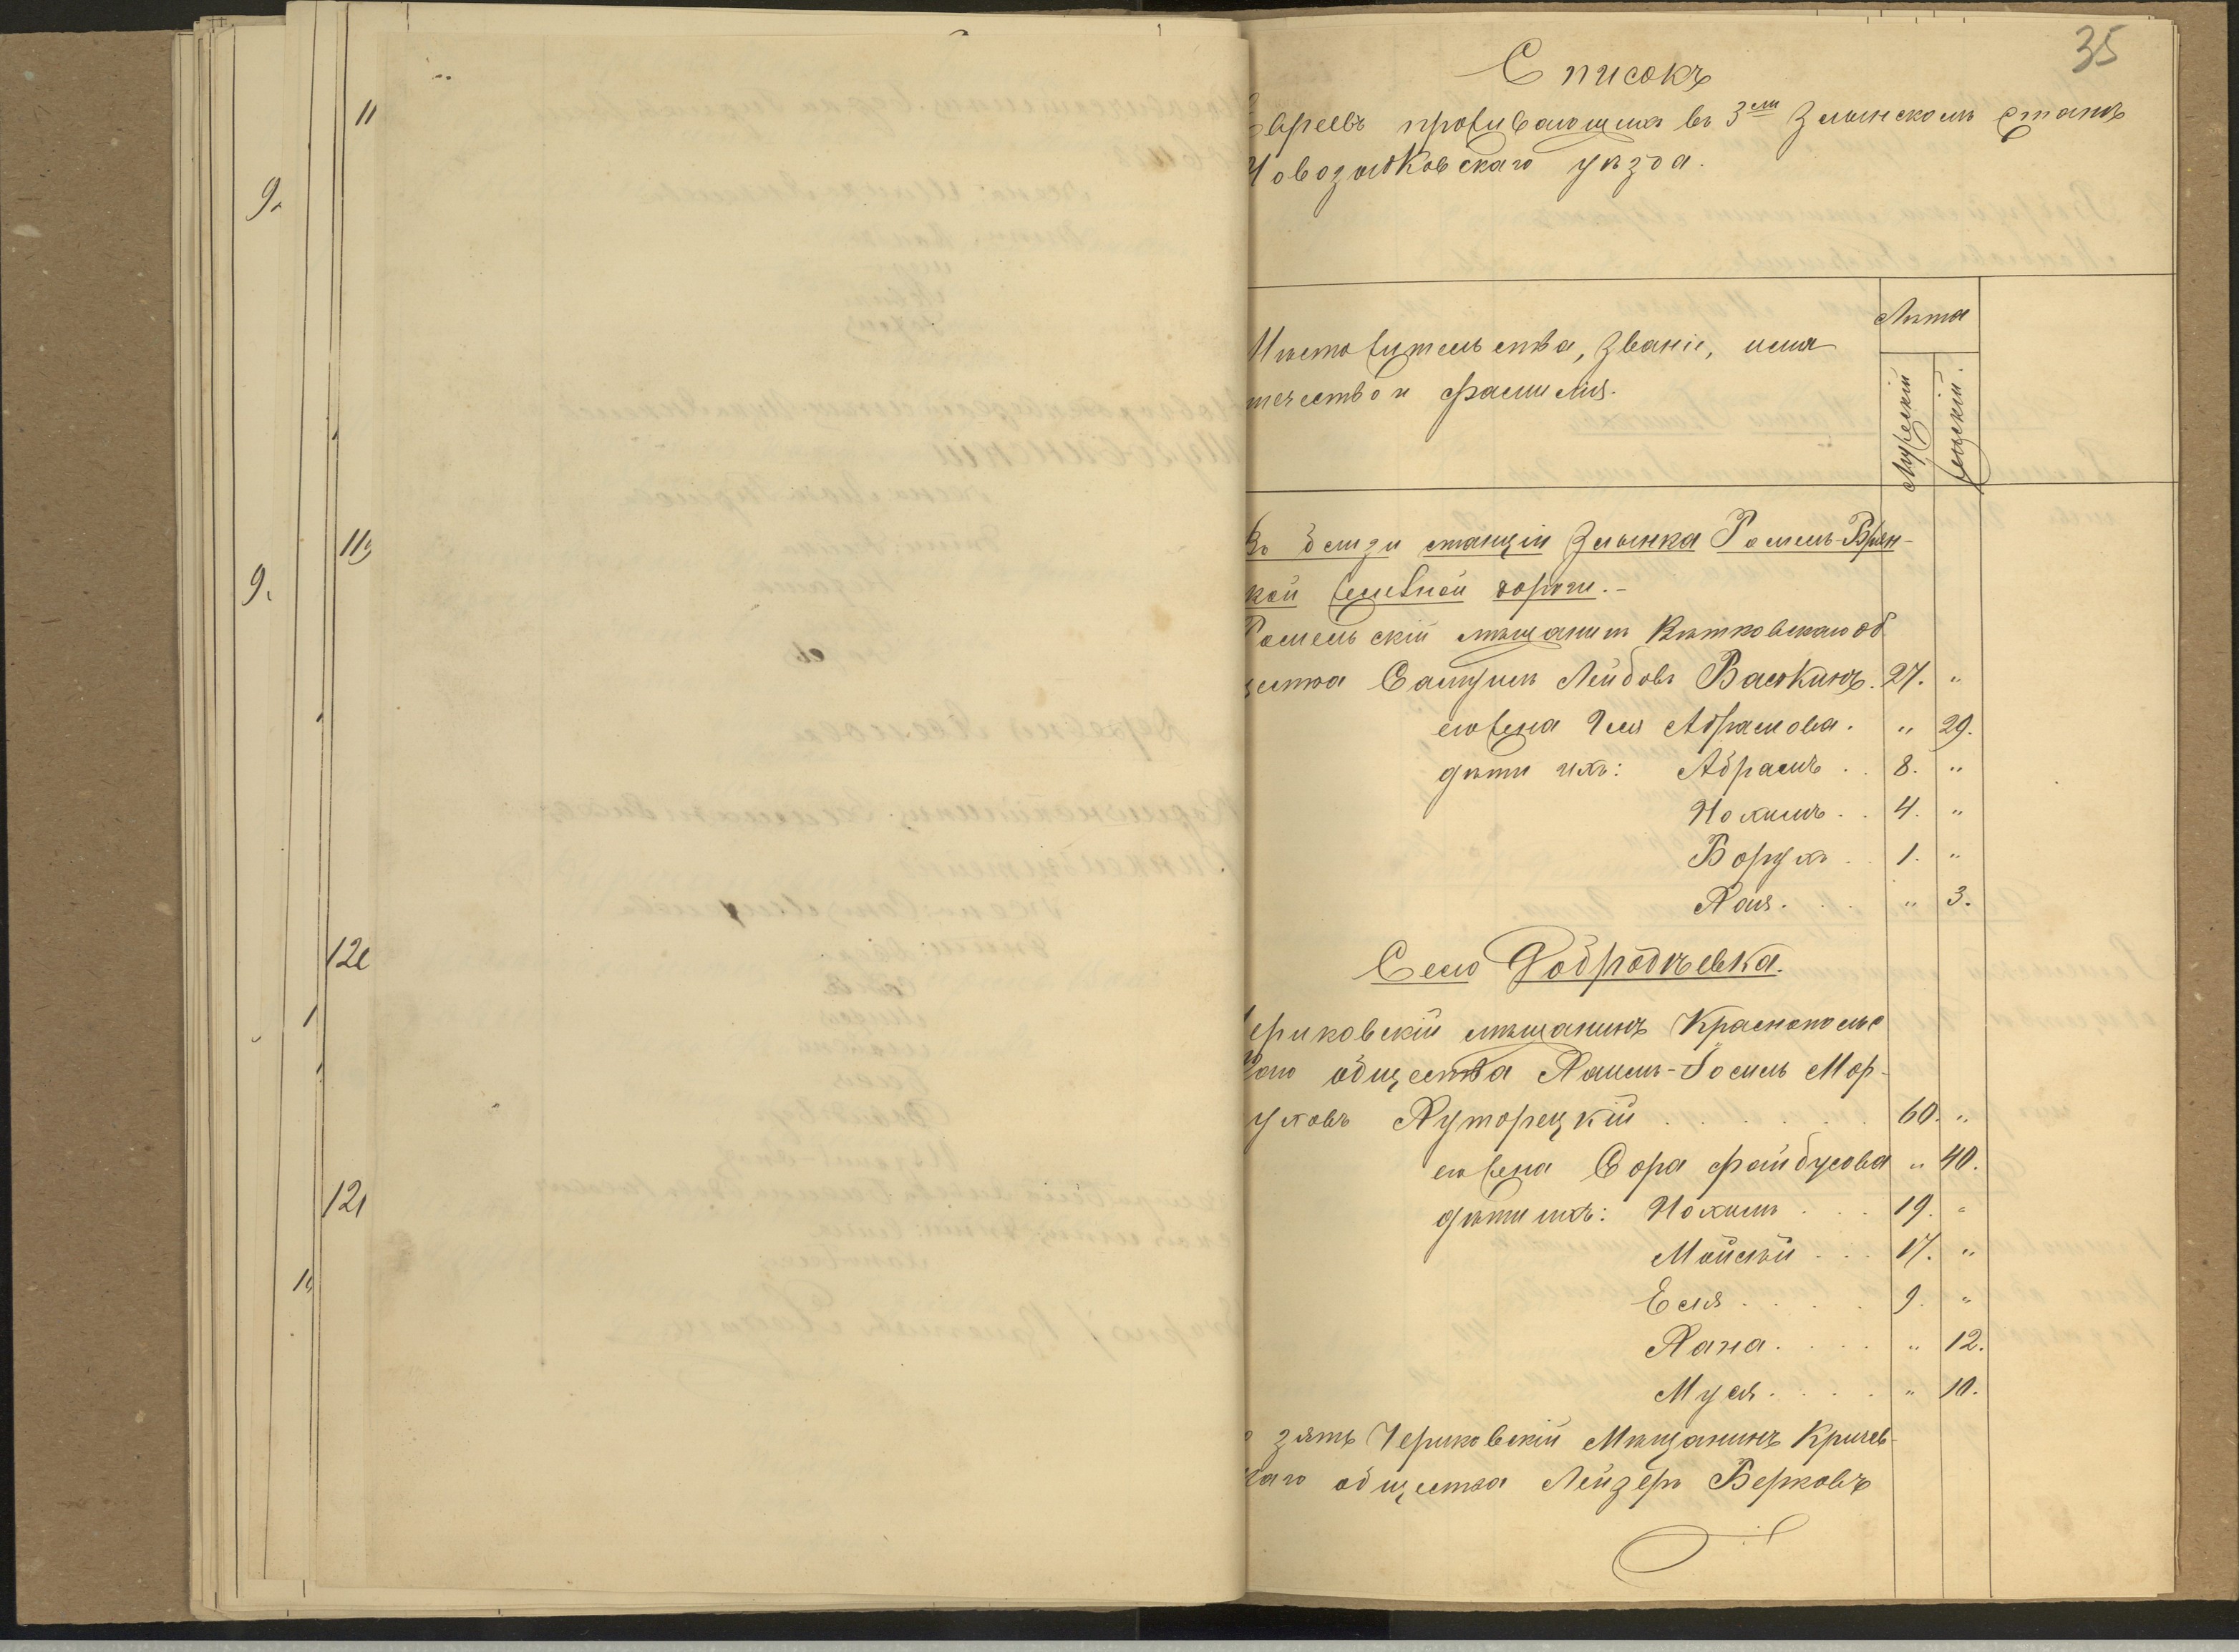 11
9.
11
9.
12
1
12
1
35
Списокъ
Евреевъ проживающихъ въ 3емъ Злынскомъ станѣ
Новозыбковскаго уѣзда.
Мѣстожительства, званіе, имя
отчество и фамилія.
Лѣта
Мужескій
Женскій.
Въ близи станціи Злынка Гомель-Брян-
кой желѣзной дороги.-
Гомельскій мѣщанинъ Вѣтковскаго об
щества Самуилъ Лейбовъ Васькинъ. 27. "
его жена Абрамова. " 29.
дѣти ихъ: Абрамъ . . 8. "
Нохимъ . . 4. "
Борухъ . . 1. "
Хая. . . . " 3.
Село Добродѣевка.
Чериковскій мѣщанинъ Краснопольс
каго общества Хаимъ-Іосель Мор-
уховъ Хуторецкій . . . . . . 60. "
его жена Сора Файбусова " 40.
дѣти ихъ: Нохимъ . . . 19. "
Мойсѣй . . . 17. "
Еся . . . . . 9. "
Хана . . . . . " 12.
Муся . . . . . " 10.
зять Чериковскій Мѣщанинъ Кричев-
каго общества Лейзеръ Берковъ